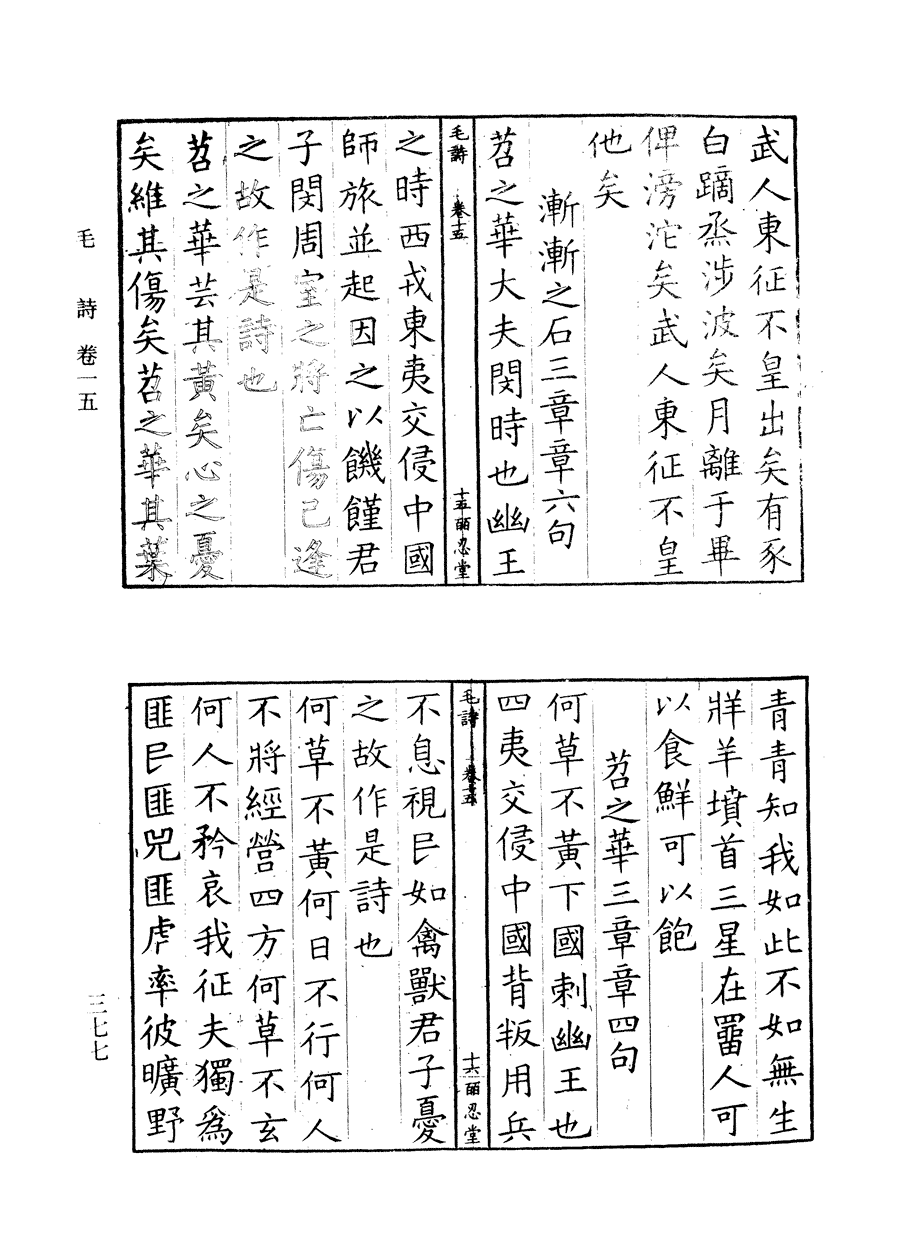 武人東征不皇出矣有豕
白蹢烝涉波矣月離于畢
俾滂沱矣武人東征不皇
他矣
漸漸之石三章章六句
苕之華大夫閔時也幽王
毛詩 卷十五 十五 皕忍堂
之時西戎東夷交侵中國
師旅並起因之以饑饉君
子閔周室之將亡傷己逢
之故作是詩也
苕之華芸其黃矣心之憂
矣維其傷矣苕之華其葉
毛詩 卷一五
青青知我如此不如無生
牂羊墳首三星在罶人可
以食鮮可以飽
苕之華三章章四句
何草不黃下國刺幽王也
四夷交侵中國背叛用兵
毛詩 卷十五 十六 皕忍堂
不息視民如禽獸君子憂
之故作是詩也
何草不黃何日不行何人
不將經營四方何草不玄
何人不矜哀我征夫獨爲
匪民匪兕匪虎率彼曠野
三七七